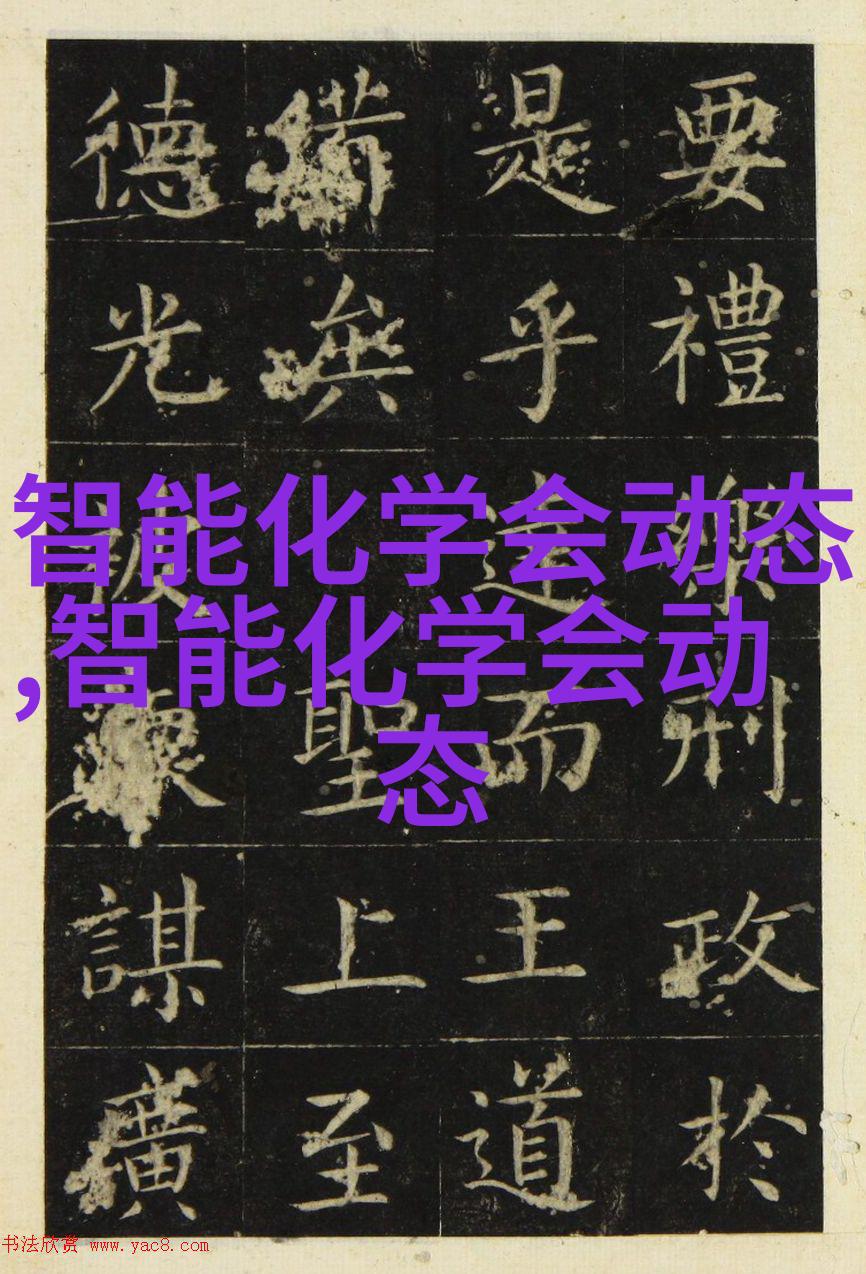 智能化学会动态
,智能化学会动
态
要禮樂刑政於
是乎達而王道
備矣聖上至
德光被謀廣
书法欣赏 www.yac8.com